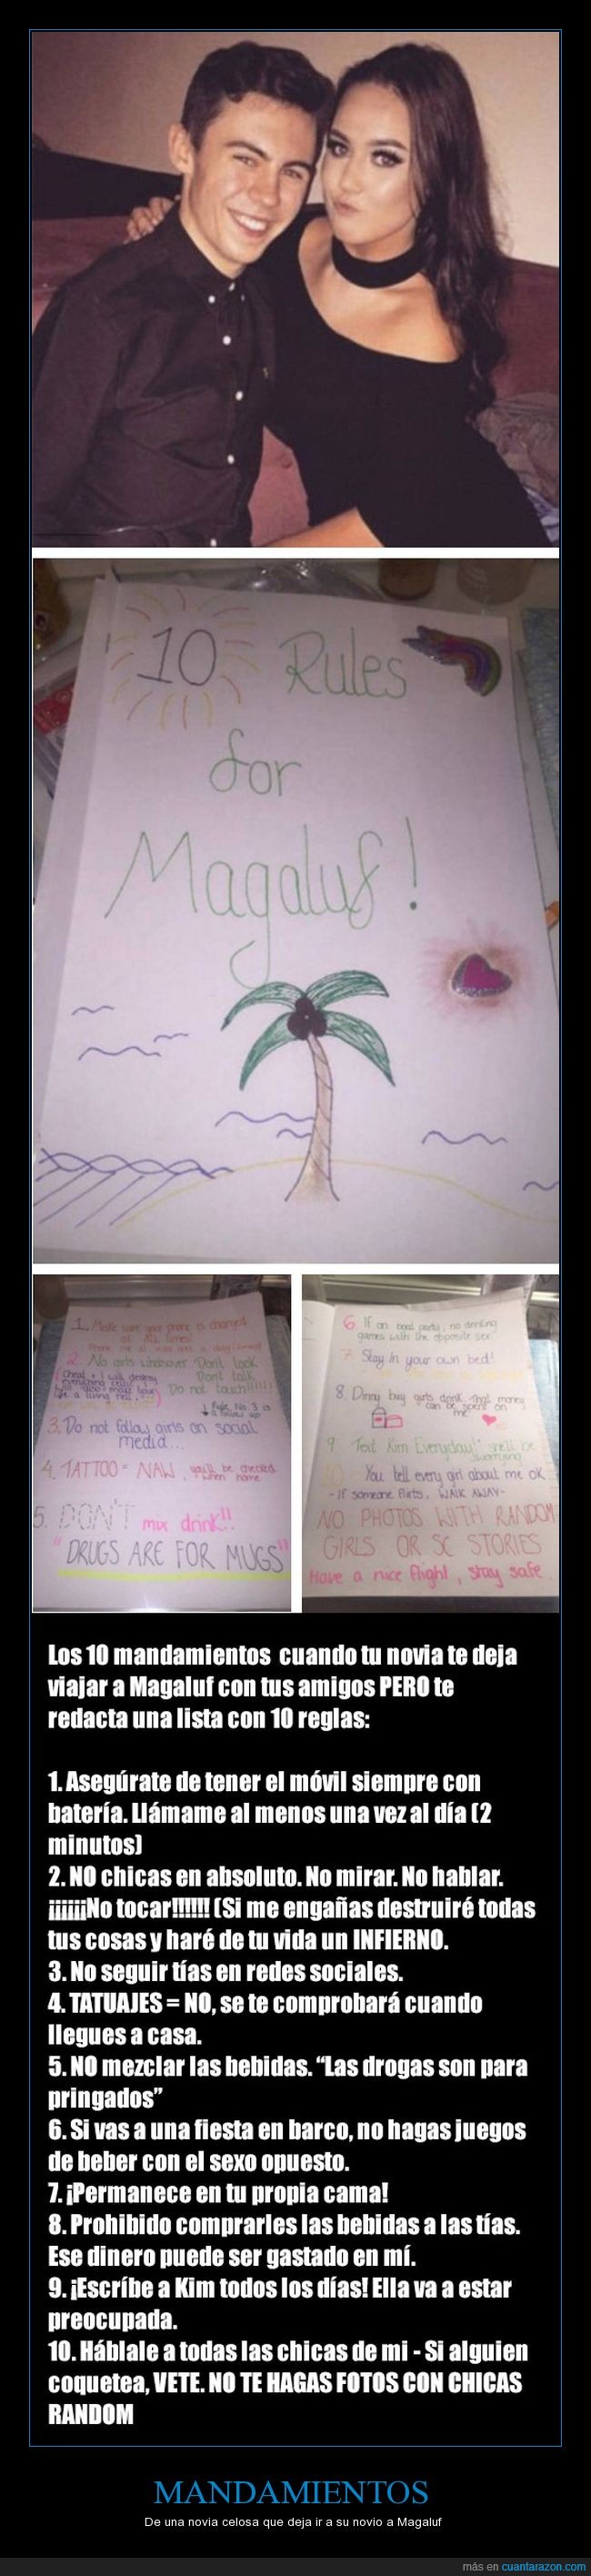 10 Rules
for
Magaluf!
1. Make sure your phone is charged
at ALL times!
Phone me at least once a day (2mins)
2. No girls whatsoever Don't look
Don't talk
Do not touch!!!!!!
(Cheat + I will destroy
everything
+ also make your
life a living hell
↓ Rule No. 3 is
a follow up
3. Do not follow girls on social
media...
4. TATTOO = NAW, you'll be checked
when home
5. DON'T mix drink!!
"DRUGS ARE FOR MUGS"
6. If on boat party, no drinking
games with the opposite sex
7. Stay in your own bed!
8. Dinny buy girls drink, that money
can be spent on
me
9. Text Kim Everyday! she'll be
worrying
10. You tell every girl about me ok
- If someone flirts, WALK AWAY -
NO PHOTOS WITH RANDOM
GIRLS OR SC STORIES
Have a nice flight, stay safe
Los 10 mandamientos cuando tu novia te deja
viajar a Magaluf con tus amigos PERO te
redacta una lista con 10 reglas:
1. Asegúrate de tener el móvil siempre con
batería. Llámame al menos una vez al día (2
minutos)
2. NO chicas en absoluto. No mirar. No hablar.
¡¡¡¡¡¡No tocar!!!!!! (Si me engañas destruiré todas
tus cosas y haré de tu vida un INFIERNO.
3. No seguir tías en redes sociales.
4. TATUAJES = NO, se te comprobará cuando
llegues a casa.
5. NO mezclar las bebidas. “Las drogas son para
pringados”
6. Si vas a una fiesta en barco, no hagas juegos
de beber con el sexo opuesto.
7. ¡Permanece en tu propia cama!
8. Prohibido comprarles las bebidas a las tías.
Ese dinero puede ser gastado en mí.
9. ¡Escríbe a Kim todos los días! Ella va a estar
preocupada.
10. Háblale a todas las chicas de mi - Si alguien
coquetea, VETE. NO TE HAGAS FOTOS CON CHICAS
RANDOM
MANDAMIENTOS
De una novia celosa que deja ir a su novio a Magaluf
más en cuantarazon.com